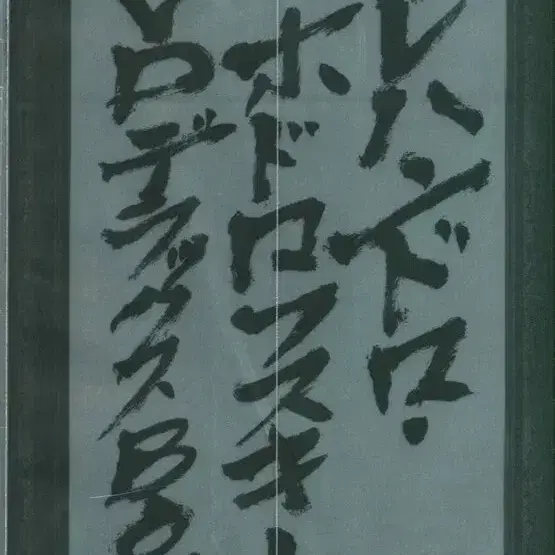 レハンドロ・
ホドロフスキー
VDデラックスBO